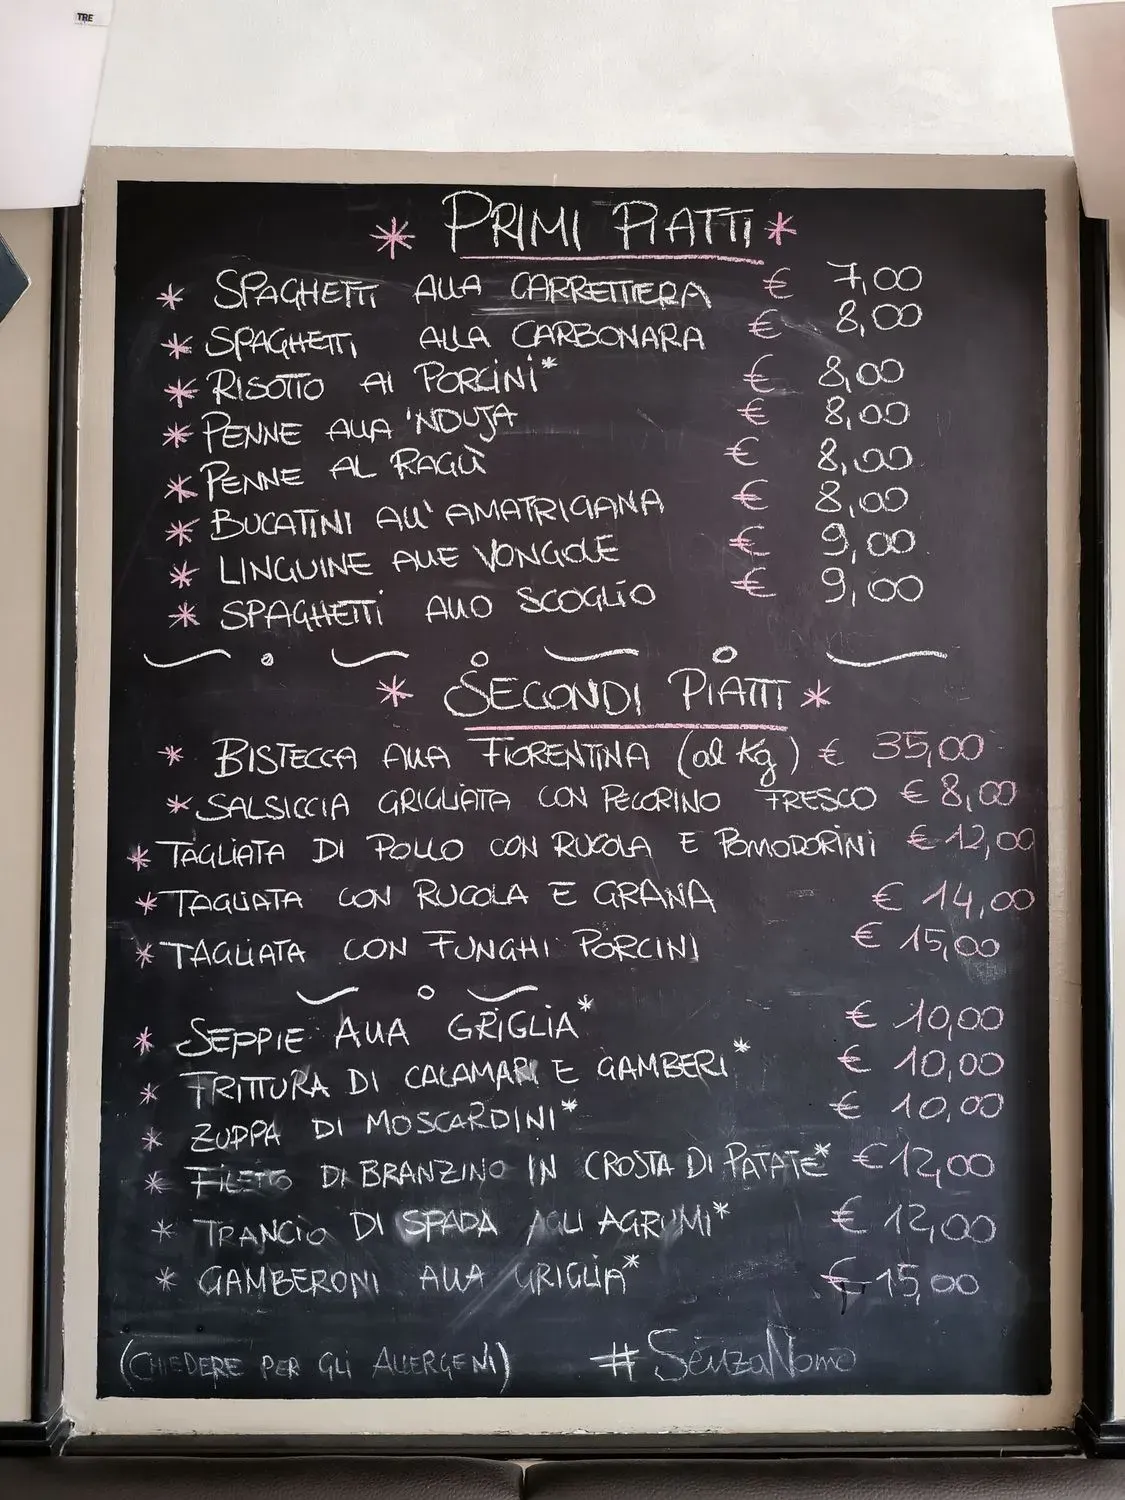 TRE
* PRIMI PIATTI *
* SPAGHETTI ALLA CARRETTIERA € 7,00
* SPAGHETTI ALLA CARBONARA € 8,00
* RISOTTO AI PORCINI* € 8,00
* PENNE ALLA 'NDUJA € 8,00
* PENNE AL RAGÙ € 8,00
* BUCATINI ALL' AMATRICIANA € 8,00
* LINGUINE ALLE VONGOLE € 9,00
* SPAGHETTI ALLO SCOGLIO € 9,00
* SECONDI PIATTI *
* BISTECCA ALLA FIORENTINA (al Kg) € 35,00
* SALSICCIA GRIGLIATA CON PECORINO FRESCO € 8,00
* TAGLIATA DI POLLO CON RUCOLA E POMODORINI € 12,00
* TAGLIATA CON RUCOLA E GRANA € 14,00
* TAGLIATA CON FUNGHI PORCINI € 15,00
* SEPPIE ALLA GRIGLIA* € 10,00
* FRITTURA DI CALAMARI E GAMBERI* € 10,00
* ZUPPA DI MOSCARDINI* € 10,00
* FILETTO DI BRANZINO IN CROSTA DI PATATE* € 12,00
* TRANCIO DI SPADA AGLI AGRUMI* € 12,00
* GAMBERONI ALLA GRIGLIA* € 15,00
(CHIEDERE PER GLI ALLERGENI) #SenzaNome